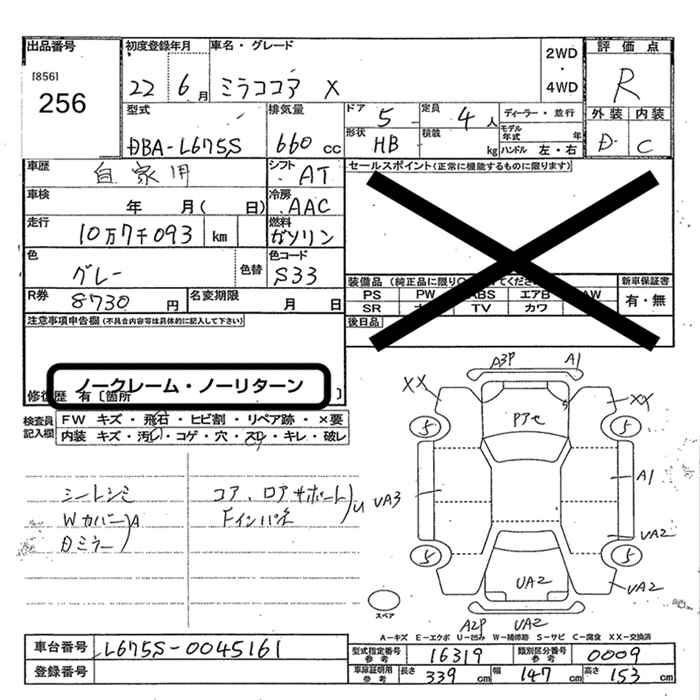 出品番号
[856]
256
初度登録年月
22 6月
車名・グレード
ミラココア X
2WD
・
4WD
評価点
R
外装 内装
D C
型式
DBA-L675S
排気量
660 cc
ドア 5
定員 4 人
形状 HB
積載 kg
ディーラー・並行
モデル年式 年
ハンドル 左・右
車歴 自家用
シフト AT
車検 年 月( 日)
冷房 AAC
走行 10万7千093 km
燃料 ガソリン
色 グレー
色替
色コード S33
R券 8730 円
名変期限 月 日
セールスポイント(正常に機能するものに限ります)
装備品(純正品に限り
てください
PS PW ABS エアB AW
SR TV カワ
新車保証書
有・無
後日品
注意事項申告欄(不具合内容等は具体的に記入して下さい)
ノークレーム・ノーリターン
修復歴 有〔箇所 〕
検査員記入欄
FW キズ・飛石・ヒビ割・リペア跡・×要
内装 キズ・汚レ・コゲ・穴・スレ・キレ・破レ
シートシミ
Wカバー
Dミラー
A
コア、ロアサポート
Fインパネ
U
A3P A1
XX XX
Pアセ
5 5
UA3 A1
UA2
5 5
UA2 UA2
A2P UA2
スペア
A－キズ E－エクボ U－凹み W－補修跡 S－サビ C－腐食 XX－交換済
車台番号 L675S-0045161
登録番号
型式指定番号参考 16319
類別区分番号参考 0009
車庫証明用参考
長さ 339 cm 幅 147 cm 高さ 153 cm